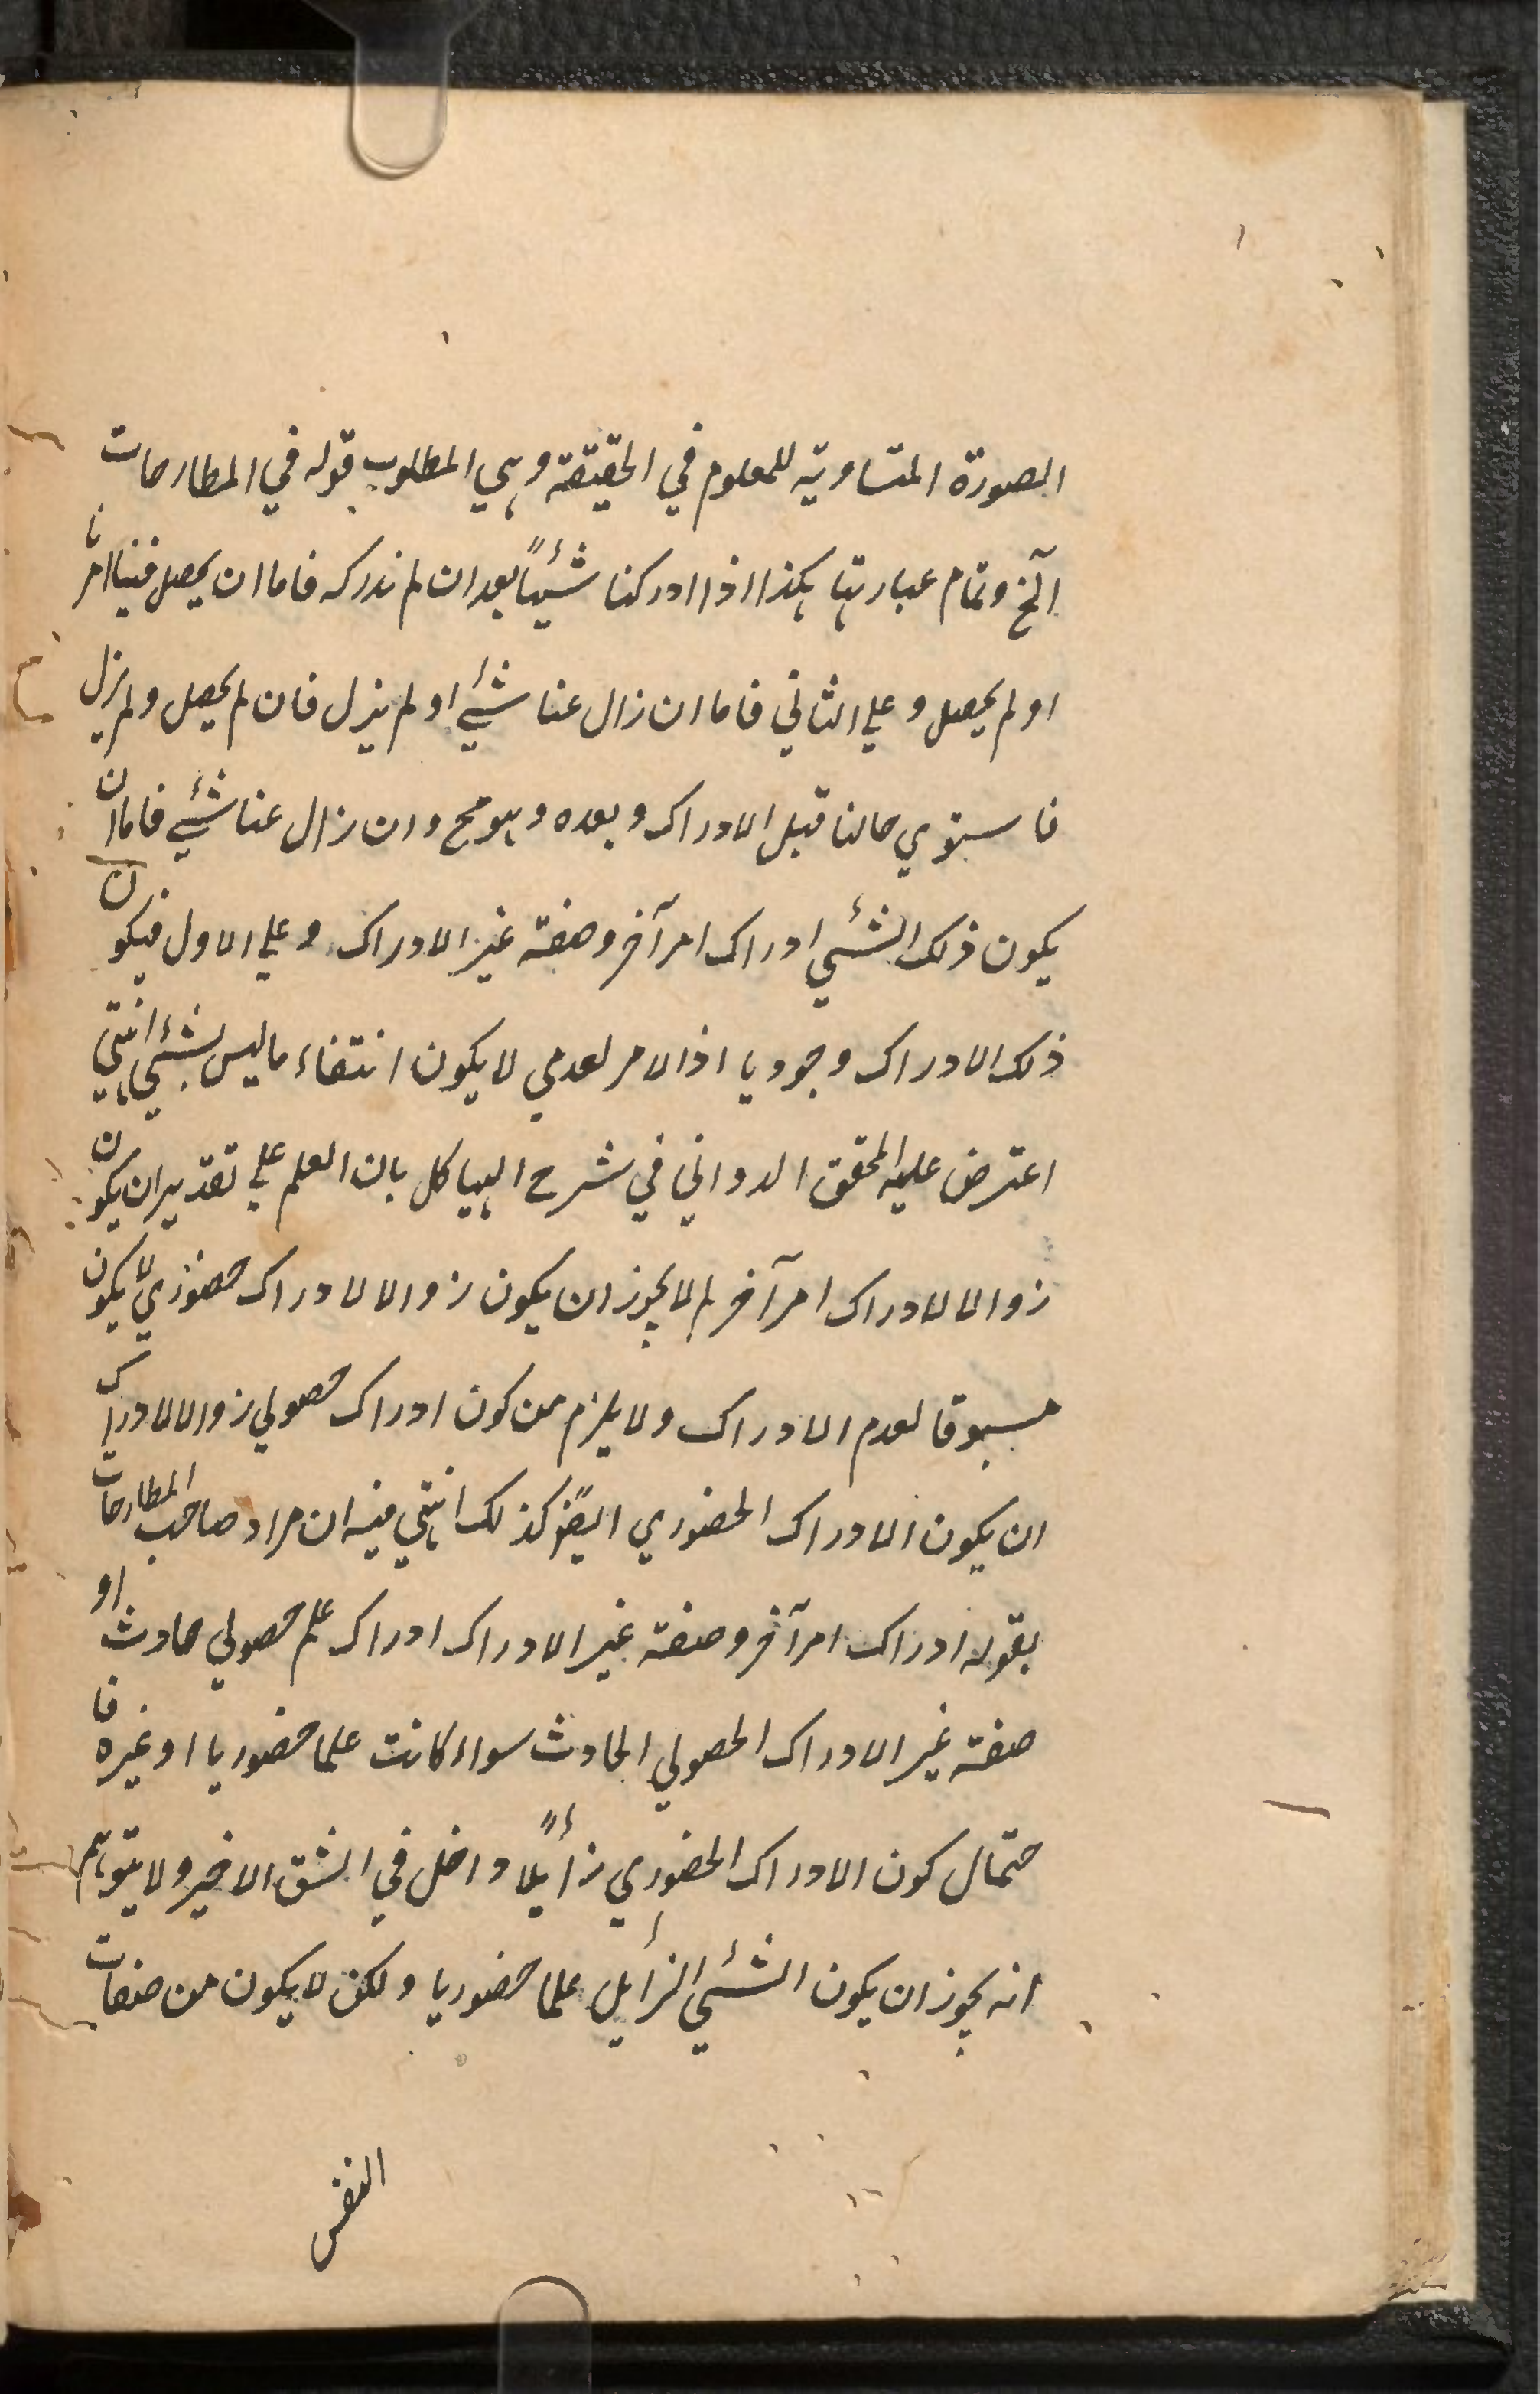 الصورة المتساوية للمعلوم في الحقيقة وهي المطلوب قوله في المطارحات
آلخ وتمام عبارتها هكذا اذا ادركنا شيئًا بعد ان لم ندركه فاما ان يحصل فينا امر ما
او لم يحصل وعلي الثاني فاما ان زال عنا شئ او لم يزل فان لم يحصل ولم يزل
فاستوي حالنا قبل الادراك وبعده وهو مح وان زال عنا شئ فاما ان
يكون ذلك الشئ ادراك امر آخر وصفة غير الادراك وعلي الاول فيكون
ذلك الادراك وجوديا اذ الامر لعدمي لا يكون انتفاء ما ليس بشئ انتهي
اعترض عليه المحقق الدواني في شرح الهياكل بان العلم علي تقدير ان يكون
زوالا لادراك امر آخر لم لا يجوز ان يكون زوالا لادراك حضوري لا يكون
مسبوقا لعدم الادراك ولا يلزم من كون ادراك حصولي زوالا لادراك
ان يكون الادراك الحضوري ايضًا كذلك انتهي فيه ان مراد صاحب المطارحات
بقوله ادراك امر آخر وصفة غير الادراك ادراك علم حصولي حادث او
صفة غير الادراك الحصولي الحادث سواء كانت علما حضوريا او غيره فا
حتمال كون الادراك الحضوري زائلًا داخل في الشق الاخير ولا يتوهم
انه يجوز ان يكون الشئ الزائل علما حضوريا ولكن لا يكون من صفات
النفس